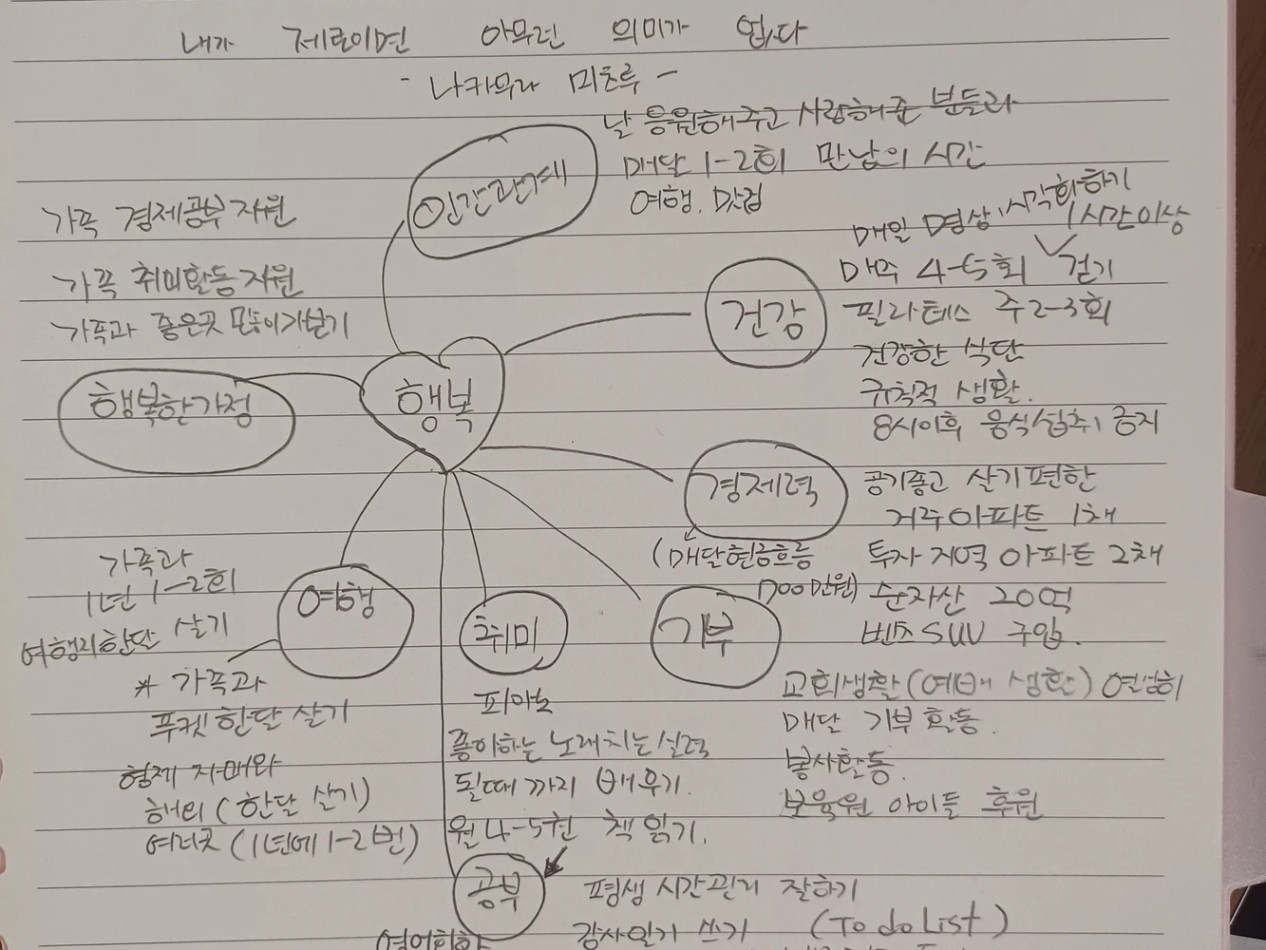 내가 제로이면 아무런 의미가 없다
- 나카무라 미츠루 -
인간관계
날 응원해주고 사랑해준 분들과
매달 1-2회 만남의 시간
여행. 맛집
가족 경제공부 지원
가족 취미활동 지원
가족과 좋은곳 많이가보기
행복한가정
행복
건강
매일 명상, 시각화하기
1시간이상
매주 4-5회 걷기
필라테스 주2-3회
건강한 식단
규칙적 생활.
8시이후 음식섭취 금지
경제력
(매달현금흐름
700만원)
공기좋고 살기편한
거주아파트 1채
투자 지역 아파트 2채
순자산 20억
벤츠SUV 구입.
여행
가족과
1년 1-2회
여행지한달 살기
* 가족과
푸켓한달 살기
형제 자매와
해외 (한달 살기)
여러곳 (1년에 1-2번)
취미
피아노
좋아하는 노래치는실력
될때까지 배우기.
월4-5권 책 읽기.
기부
교회생활(예배 생활) 열심히
매달 기부 활동.
봉사활동.
보육원 아이들 후원
공부
평생 시간관리 잘하기
감사일기 쓰기 (To do List)
영어회화